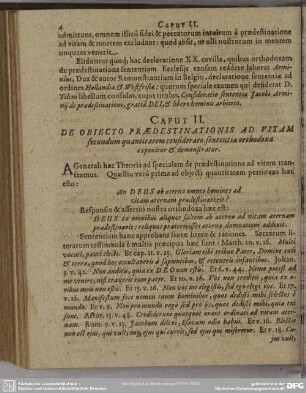 4 CAPUT II.
admittunt, omnem illico fidei & peccatorum intuitum à prædestinatione
ad vitam & mortem excludant: quod absit, ut ulli nostrorum in mentem
unquam venerit.
Eliduntur quoq; hac declaratione XX. cavilla, quibus orthodoxam
de prædestinatione sententiam Ecclesiis exosam reddere laborat Armi-
nius, Dux & autor Remonstrantium in Belgio, declaratione sententiæ ad
ordines Hollandiæ & Westfrisiæ: quorum speciale examen qui desiderat D.
libellum consulat, cujus titulus, Consideratio sententiæ Jacobi Armi-
nij de prædestinatione, gratiâ DEI & libero hominis arbitrio.
CAPUT II.
DE OBIECTO PRÆDESTINATIONIS AD VITAM
secundum quantitatem considerato, sententia orthodoxa
exponitur & demonstratur.
A Generali hac Theoria ad specialem de prædestinatione ad vitam tran-
seamus. Quæstio verò prima ad objecti quantitatem pertinens hæc
esto:
An DEUS ab æterno omnes homines ad
vitam æternam prædestinaverit?
Responsio & assertio nostra orthodoxa hæc est:
DEUS ex omnibus aliquos saltem ab æterno ad vitam æternam
prædestinavit: reliquos præteritos æternæ damnationi addixit.
Sententiam hanc approbant sacræ literæ & rationes. Sacrarum li-
terarum testimonia è multis præcipua hæc sunt: Matth. 20. v. 16. Multi
vocati, pauci electi. Et cap. 11. v. 25. Gloriam tibi tribuo Pater, Domine cœli
& terræ, quod hæc occultaveris à sapientibus, & retexeris infantibus. Johan.
Non auditis, quia ex DEO non estis. Et 6. v. 44. Nemo potest ad
me venire, nisi traxerit eum pater. Et 10. v. 26. Vos non creditis, quia ex o-
vibus meis non estis. Et 15. v. 16. Non vos me elegistis, sed ego vos. Et 17.
v. 6. Manifestum feci nomen tuum hominibus, quos dedisti mihi selectos è
mundo. Et v. 9. Non pro mundo rogo sed pro iis, quos dedisti mihi, quia tui
sunt. Actor. 13. v. 48. Crediderunt quotquot erant ordinati ad vitam æter-
nam. Rom. 9. v. 13. Jacobum dilexi, Esavum odio habui. Et v. 16. Electio
non est ejus, qui vult, neq; ejus qui currit, sed ejus qui miseretur. Et v. 18. Cu-
jus vult,